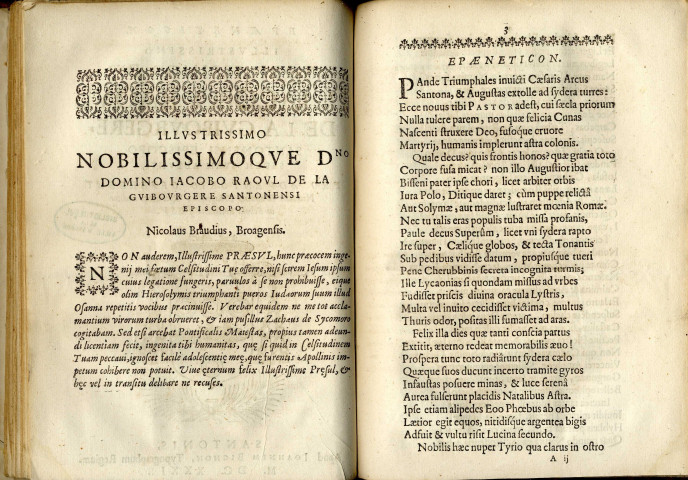 ILLVSTRISSIMO
NOBILISSIMOQVE D^NO
DOMINO IACOBO RAOVL DE LA
GVIBOVRGERE SANTONENSI
EPISCOPO
Nicolaus Braudius, Broagensis.
NON auderem, Illustrissime PRÆSVL, hunc præcocem inge-
nij mei fœtum Celsitudini Tuę offerre, nisi scirem Iesum ipsum
cuius legatione fungeris, paruulos à se non prohibuisse, eique
olim Hierosolymis triumphanti pueros Iudæorum suum illud
Osanna repetitis vocibus præcinuisse. Verebar equidem ne me tot accla-
mantium virorum turba obrueret, & iam pusillus Zachæus de Sycomoro
cogitabam. Sed etsi arcebat Pontificalis Maiestas, propius tamen adeun-
di licentiam fecit, ingenita tibi humanitas, quę si quid in Celsitudinem
Tuam peccaui, ignoscet facilè adolescentię meę, quę furentis Apollinis im-
petum cohibere non potuit. Viue ęternum felix Illustrissime Pręsul, &
hęc vel in transitu delibare ne recuses.
3
EPÆNETICON.
PAnde Triumphales inuicti Cæsaris Arcus
Santona, & Augustas extolle ad sydera turres:
Ecce nouus tibi PASTOR adest, cui sæcla priorum
Nulla tulere parem, non quæ felicia Cunas
Nascenti struxere Deo, fusoque cruore
Martyrij, humanis implerunt astra colonis.
Quale decus? quis frontis honos? quæ gratia toto
Corpore fusa micat? non illo Augustior ibat
Bisseni pater ipse chori, licet arbiter orbis
Iura Polo, Ditique daret; cùm puppe relictâ
Aut Solymæ, aut magnæ lustraret mœnia Romæ.
Nec tu talis eras populis tuba missa profanis,
Paule decus Superûm, licet vni sydera rapto
Ire super, Cælique globos, & tecta Tonantis
Sub pedibus vidisse datum, propiusque tueri
Pene Cherubbinis secreta incognita turmis;
Ille Lycaonias si quondam missus ad vrbes
Fudisset priscis diuina oracula Lystris,
Multa vel inuito cecidisset victima, multus
Thuris odor, positas illi fumasset ad aras.
Felix illa dies quæ tanti conscia partus
Extitit, æterno redeat memorabilis æuo!
Prospera tunc toto radiarunt sydera cælo
Quæque suos ducunt incerto tramite gyros
Infaustas posuere minas, & luce serenâ
Aurea fulserunt placidis Natalibus Astra.
Ipse etiam alipedes Eoo Phœbus ab orbe
Lætior egit equos, nitidisque argentea bigis
Adfuit & vultu risit Lucina secundo.
Nobilis hæc nuper Tyrio qua clarus in ostro
A ij